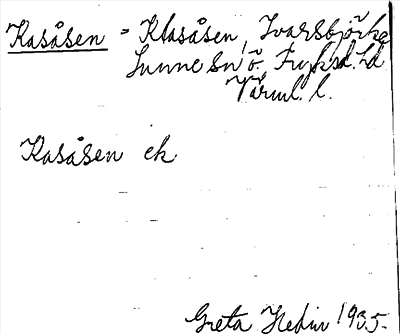 Kasåsen = Klasåsen, Ivarsbjörke
Sunne sn Ö. Fryksd. hd
Värml. l.
Kasåsen ek
Greta Hedin 1935.